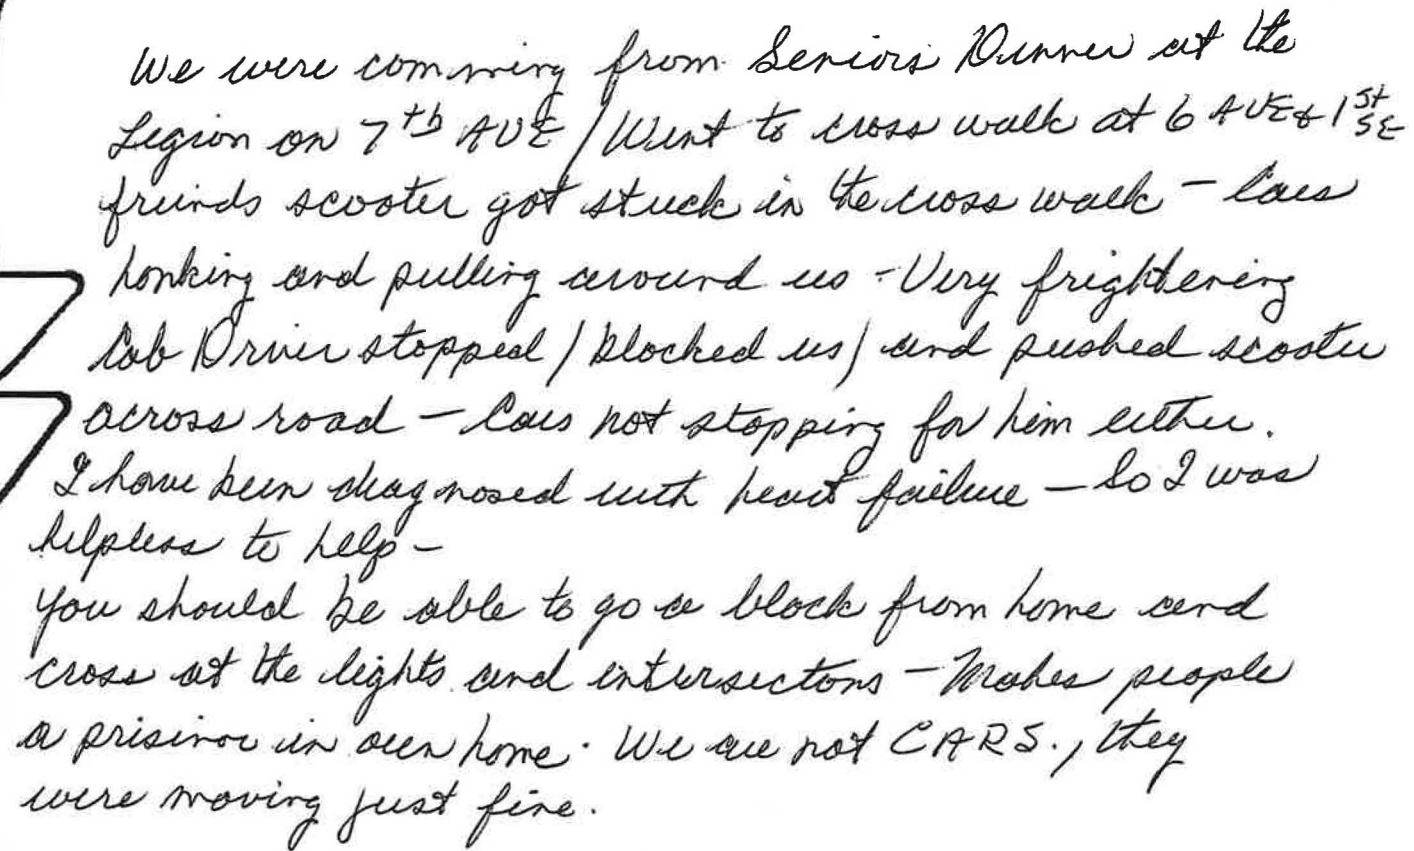 We were comming from Seniors Dinner at the
Legion on 7th AVE / Went to cross walk at 6 AVE & 1st SE
freinds scooter got stuck in the cross walk - Cars
honking and pulling around us - Very frightening
Cab Driver stopped / blocked us / and pushed scooter
across road - Cars not stopping for him either.
I have been diagnosed with heart failure - So I was
helpless to help -
you should be able to go a block from home and
cross at the lights and intersectons - Makes people
a prisinor in own home. We are not CARS., they
were moving just fine.